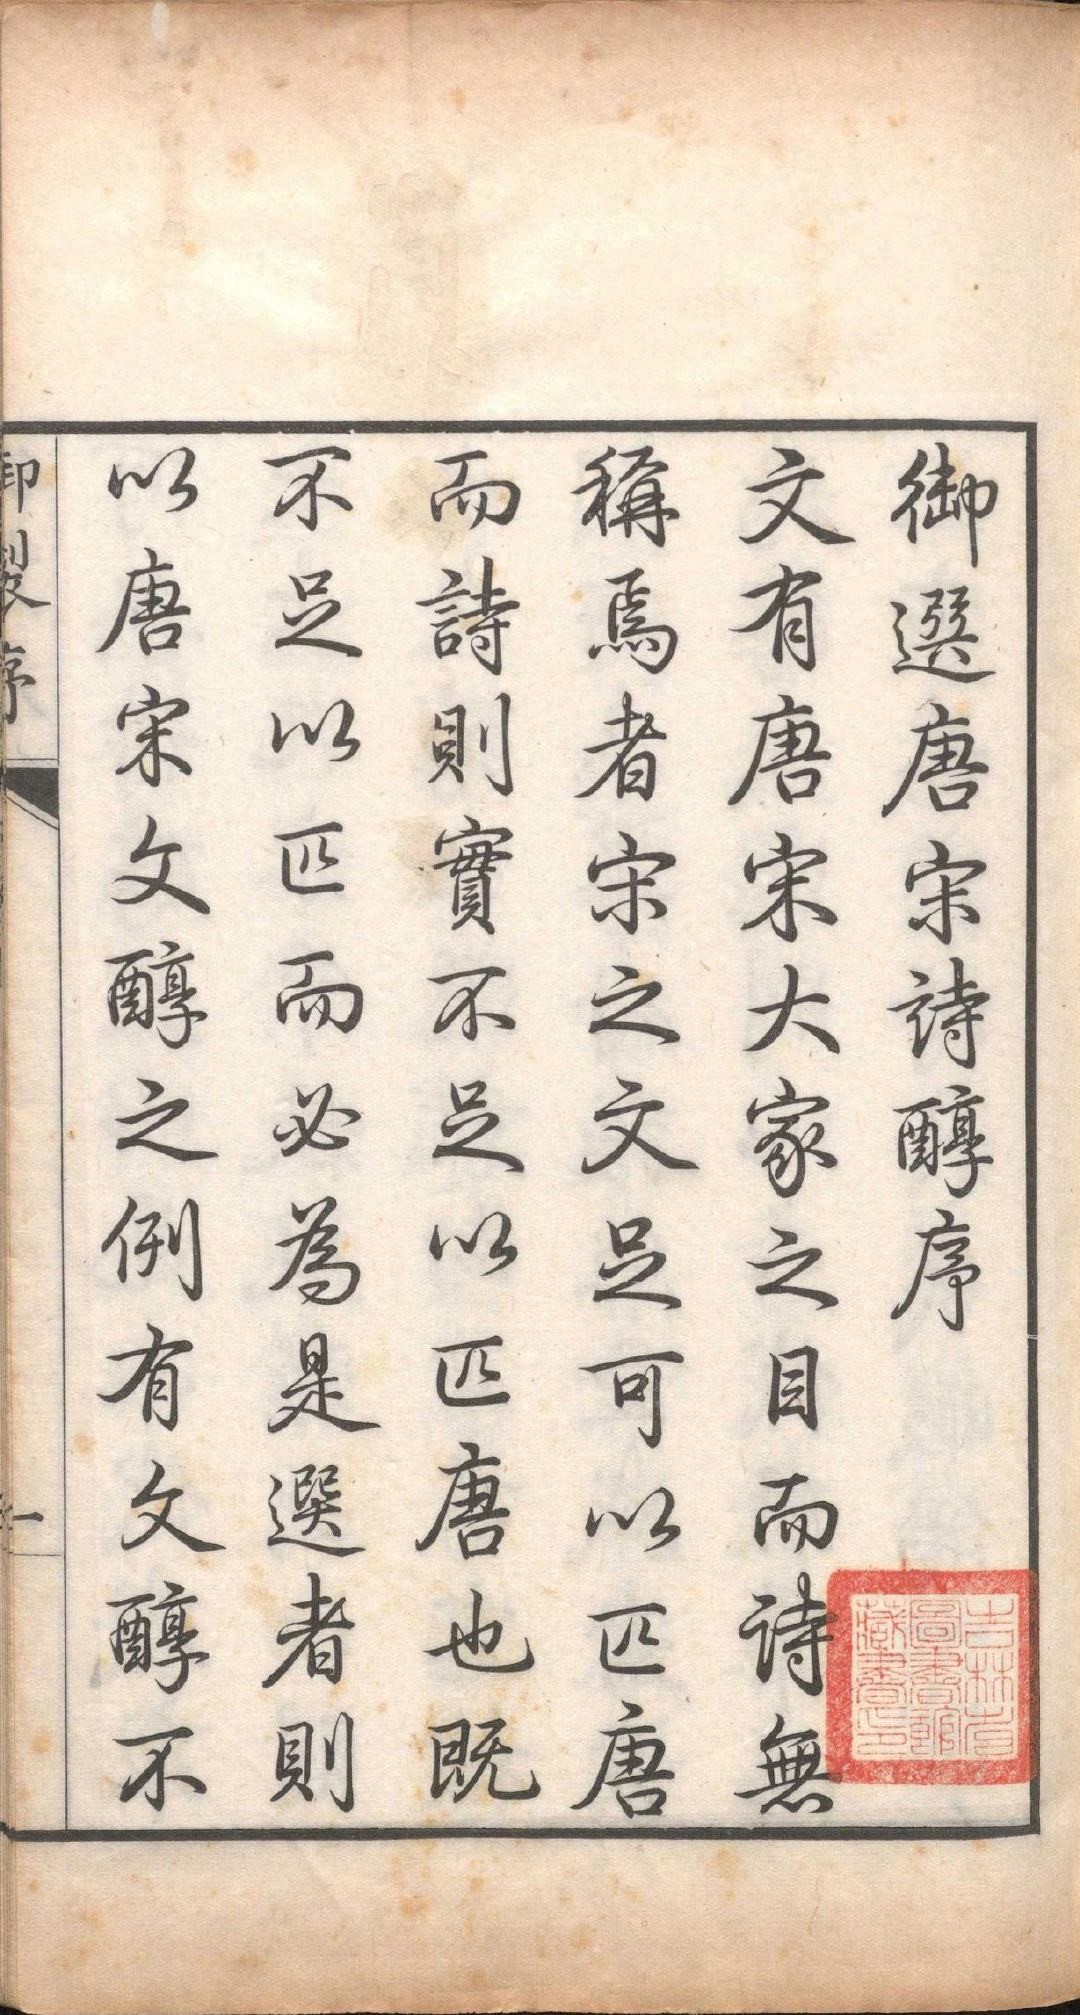 御選唐宋詩醇序
文有唐宋大家之目而詩無
稱焉者宋之文足可以匹唐
而詩則實不足以匹唐也既
不足以匹而必為是選者則
以唐宋文醇之例有文醇不
御製序
一
吉林省
圖書館
藏書之印